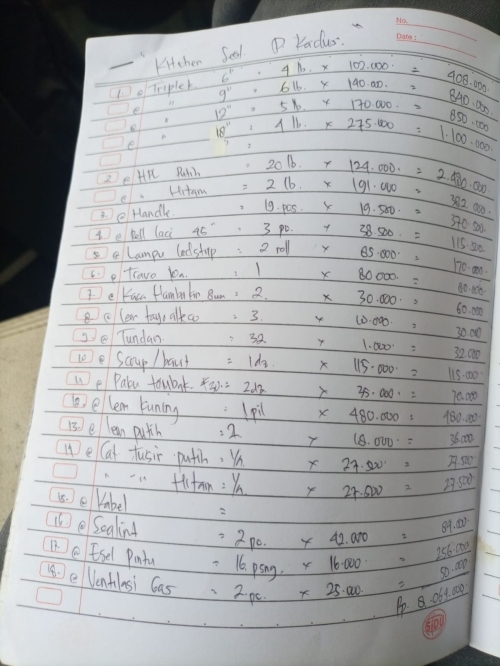 No.
Date :
Kitchen Seal P. Kadus.
1. @ Triplek 6" = 4 lb. × 102.000 = 408.000
@ " 9" = 6 lb. × 140.000 = 840.000
@ " 12" = 5 lb × 170.000 = 850.000
@ " 18" = 4 lb × 275.000 = 1.100.000
" =
2. @ HPL Putih = 20 lb. × 124.000 = 2.480.000
@ " Hitam = 2 lb. × 191.000 = 382.000
3. @ Handle = 19 pcs. × 19.500 = 370.500
4. @ Rell laci 45" = 3 pc. × 38.500 = 115.500
5. @ Lampu ledstrip = 2 roll × 85.000 = 170.000
6. @ travo = 1 × 80.000 = 80.000
7. @ Kaca 8mm = 2. × 30.000 = 60.000
8. @ lem alteco = 3. × 10.000 = 30.000
9. @ Tundan = 32 × 1.000 = 32.000
10. @ Scrup/baut = 1 dz × 115.000 = 115.000
11. @ Paku tombak F30 = 2dz × 35.000 = 70.000
12. @ lem Kuning = 1 pil × 480.000 = 480.000
13. @ lem putih = 2 × 18.000 = 36.000
14. @ Cat tusir putih = 1/4 × 27.500 = 27.500
" " Hitam = 1/4 × 27.500 = 27.500
15. @ Kabel =
16. @ Sealint = 2 pc. × 42.000 = 84.000
17. @ Esel pintu = 16 psng. × 16.000 = 256.000
18. @ Ventilasi Gas = 2 pc. × 25.000 = 50.000
Rp. 8.064.000
SIDU